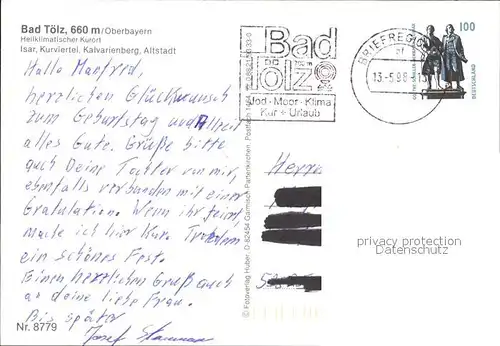 Bad Tölz, 660 m/Oberbayern
Heilklimatischer Kurort
Isar, Kurviertel, Kalvarienberg, Altstadt
Hallo Manfred,
herzlichen Glückwunsch
zum Geburtstag und Allzeit
alles Gute. Grüße bitte
auch Deine Tochter von mir,
ebenfalls verbunden mit einer
Gratulation. Wenn ihr feiert,
mache ich hier Kur. Trotzdem
ein schönes Fest.
Einen herzlichen Gruß auch
an deine liebe Frau.
Bis später
Josef
Nr. 8779
© Fotoverlag Huber, D-82454 Garmisch-Partenkirchen
Bad
Tölz
Jod · Moor · Klima
Kur + Urlaub
BRIEFREGION
13-5.98-13
100
DEUTSCHLAND
Herrn
privacy protection
Datenschutz